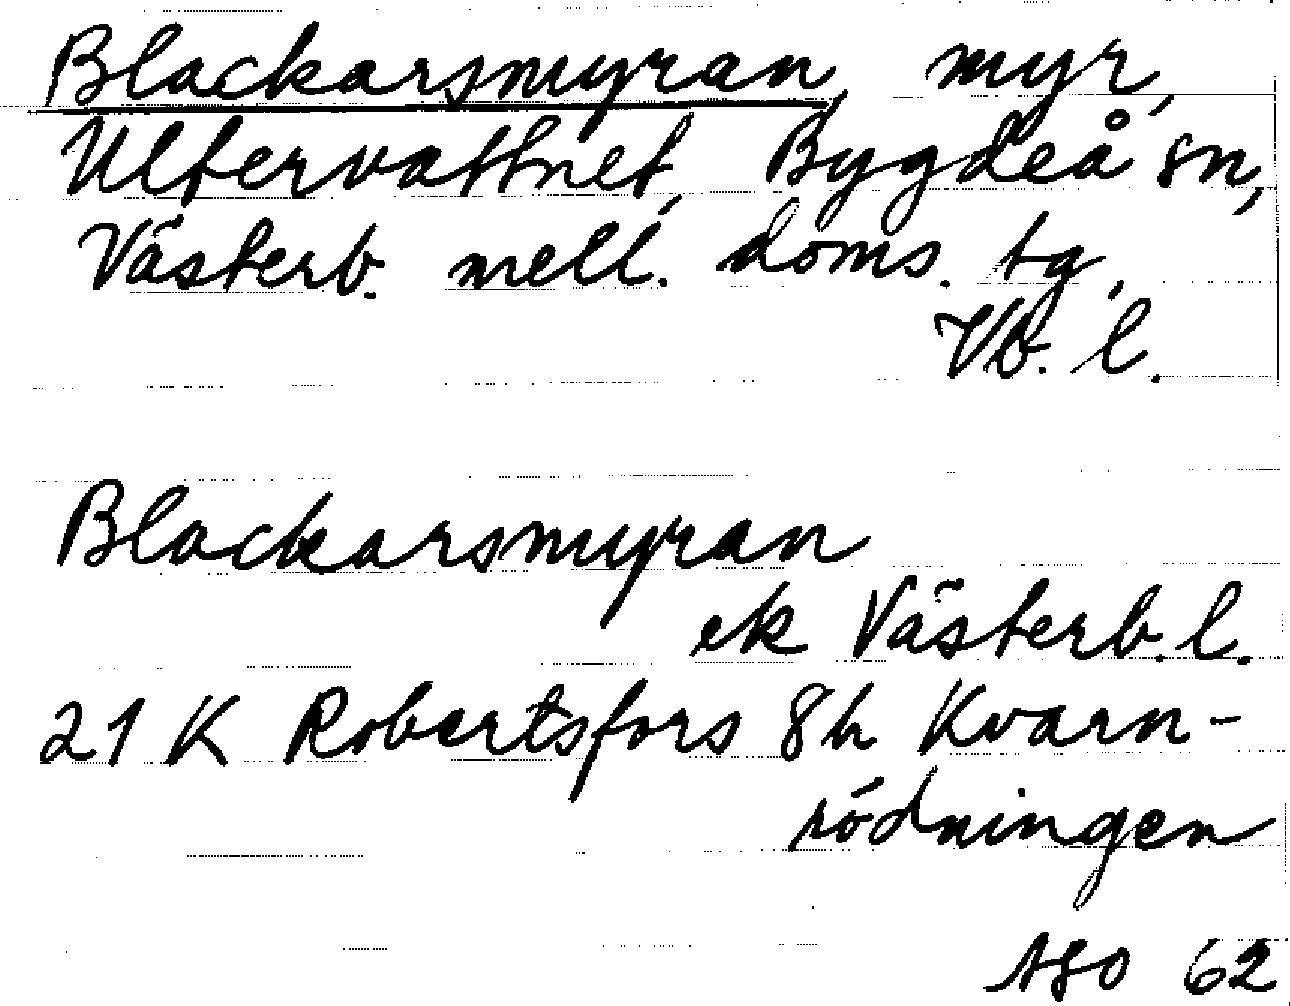 Blackarsmyran, myr,
Ultervattnet, Bygdeå sn,
Västerb. mell. doms. tg,
Vb. l.
Blackarsmyran
ek Västerb. l.
21 K Robertsfors 8h Kvarn-
rödningen
62